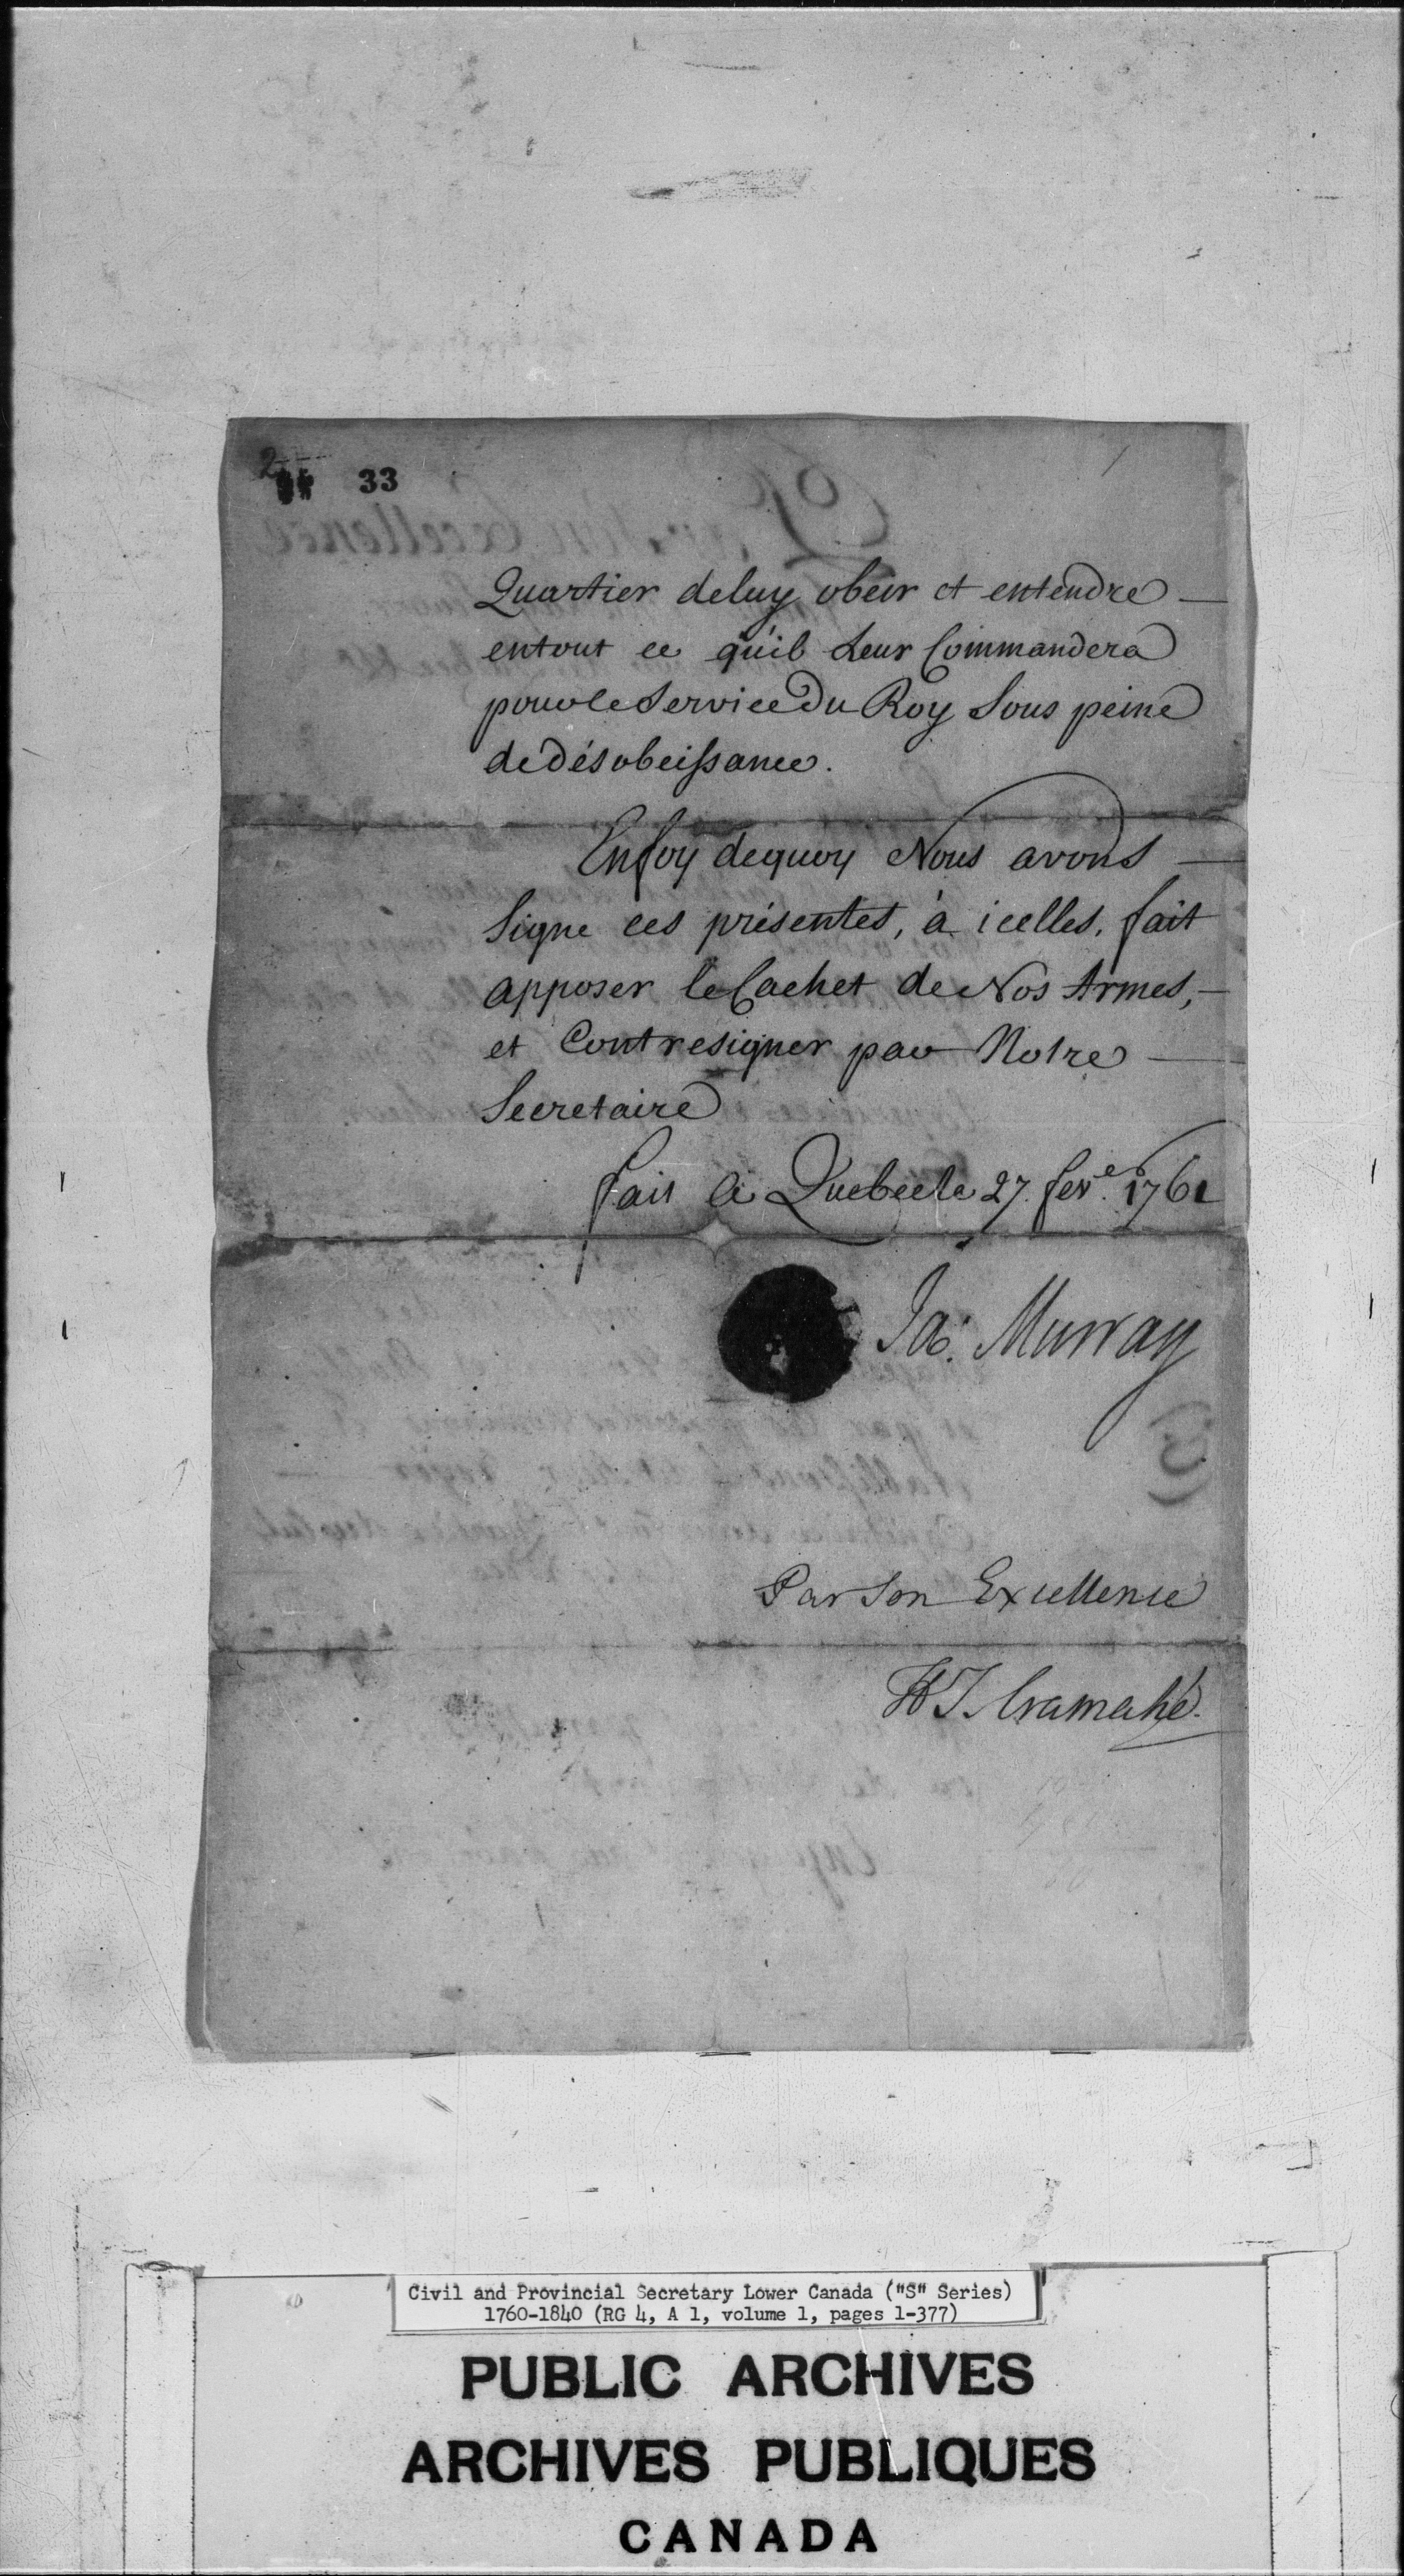 2
33
Quartier deluy obeir et entendre —
entout ce qu'il Leur Commandera
pour le Service Du Roy Sous peine
de Désobeissance.
Enfoy dequoy Nous avons —
Signe ces présentes, à icelles, fait
apposer le Cachet de Nos Armes, —
et Contresigner par Notre —
Secretaire
fait à Quebec le 27. fev.e 1761
Ja: Murray
Par Son Excellence
H T Cramahé.
Civil and Provincial Secretary Lower Canada ("S" Series)
1760-1840 (RG 4, A 1, volume 1, pages 1-377)
PUBLIC ARCHIVES
ARCHIVES PUBLIQUES
CANADA